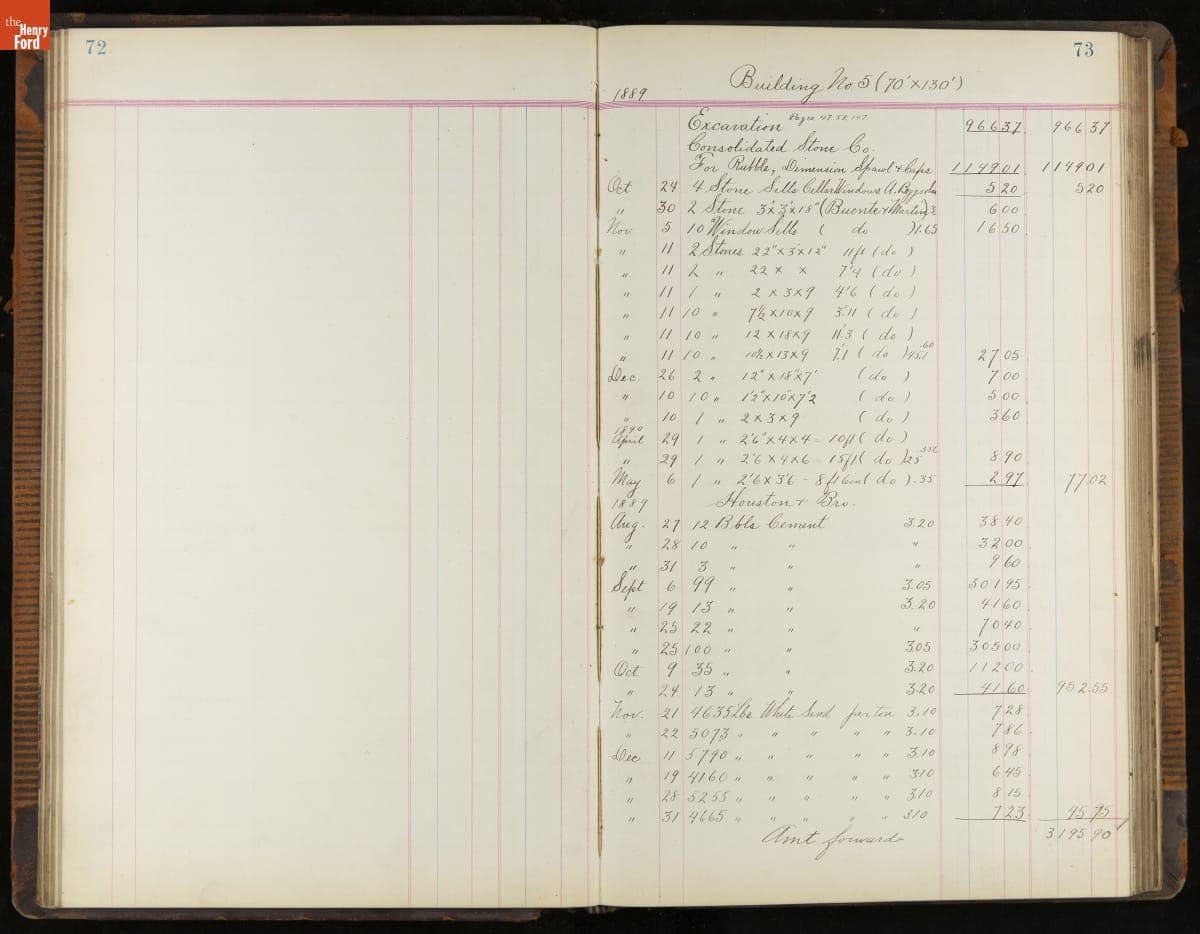 the
Henry
Ford
72
73
Building No. 5 (70'x130')
1889
Excavation Pages 47.58.147 966 37 966 37
Consolidated Stone Co.
For Rubble, Dimension Spawl & Caps 1149 01 1149 01
Oct 24 4 Stone Sills Cellar Windows A. 5 20 5 20
" 30 2 Stone 3'x3'x18" (Buente & Martin) 3. 6 00
Nov 5 10 Window Sills ( do ) 1.65 16 50
" 11 2 Stones 22"x3'x12" 11 ft (do)
" 11 2 " 22 x x 7'4 (do)
" 11 1 " 2 x 3 x 9 4'6 (do)
" 11 10 " 7½ x 10 x 9 3'.11 (do)
" 11 10 " 12 x 18 x 9 11.3 (do)
" 11 10 " 10½ x 13 x 9 7.1 (do) 45.1 .60 27 05
Dec. 26 2 " 12" x 18" x 7' (do) 7 00
" 10 10 " 1'2" x 10" x 7'2 (do) 5 00
" 10 1 " 2 x 3 x 9 (do) 3 60
1890
April 29 1 " 2'6" x 4 x 4 = 10 ft (do)
" 29 1 " 2'6 x 4 x 6 = 15 ft (do) 25 8 90
May 6 1 " 2'6 x 3'6 - 8 ft 6 in (do) .35 2 97 77 02
1889 Houston & Bro.
Aug. 27 12 Bbls Cement 3.20 38 40
" 28 10 " " " 32 00
" 31 3 " " " 9 60
Sept 6 99 " " 3.05 301 95
" 19 13 " " 3.20 41 60
" 25 22 " " " 70 40
" 25 100 " " 3.05 305 00
Oct 9 35 " " 3.20 112 00
" 24 13 " " 3.20 41 60 952.55
Nov. 21 4635 Lbs White Sand per ton 3.10 7 28
" 22 5073 " " " " " 3.10 7 86
Dec 11 5790 " " " " " 3.10 8 98
" 19 4160 " " " " " 3.10 6 45
" 28 5255 " " " " " 3.10 8 15
" 31 4665 " " " " " 3.10 7 23 45 75
Amt forward 3195 90